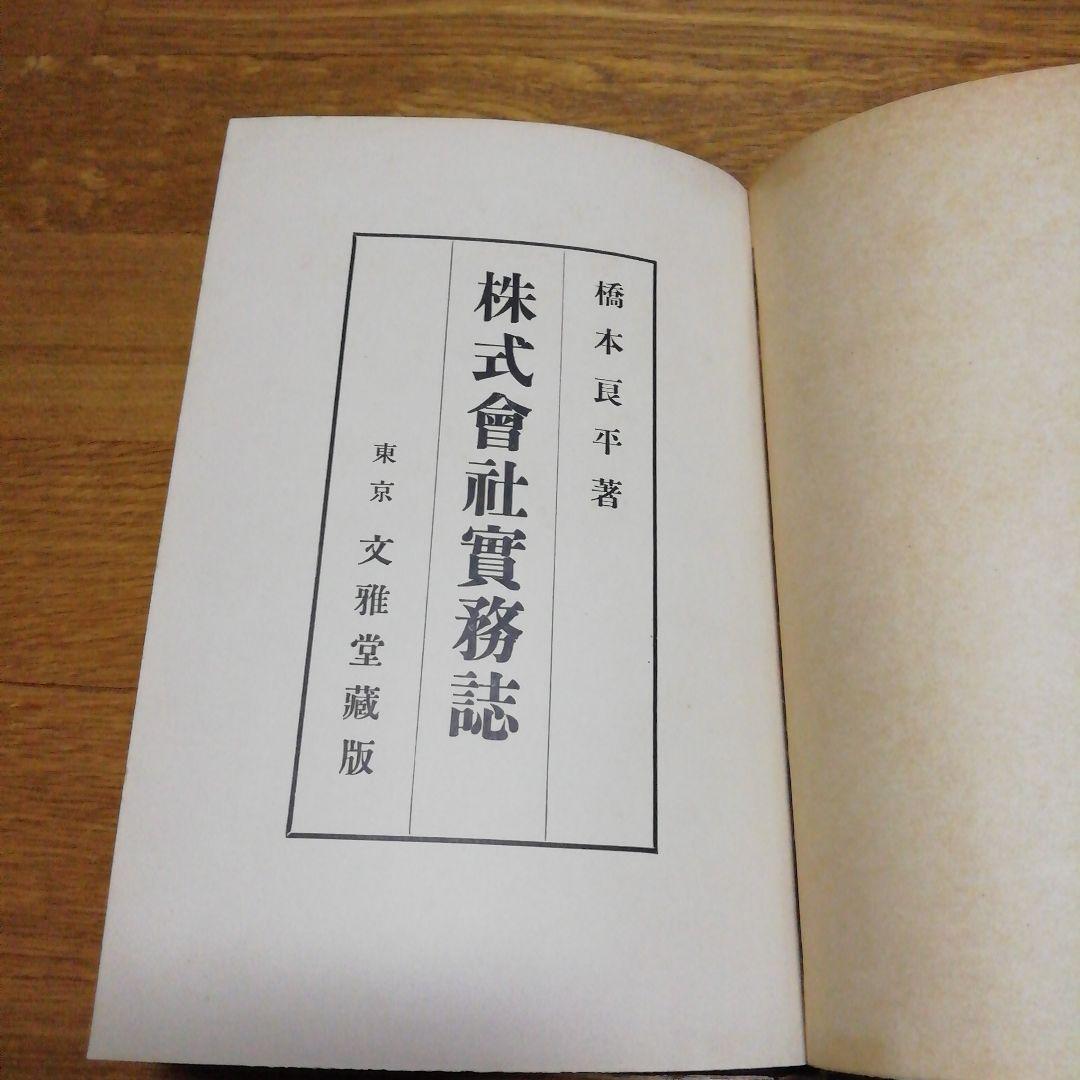 橋本良平著
株式會社實務誌
東京 文雅堂藏版